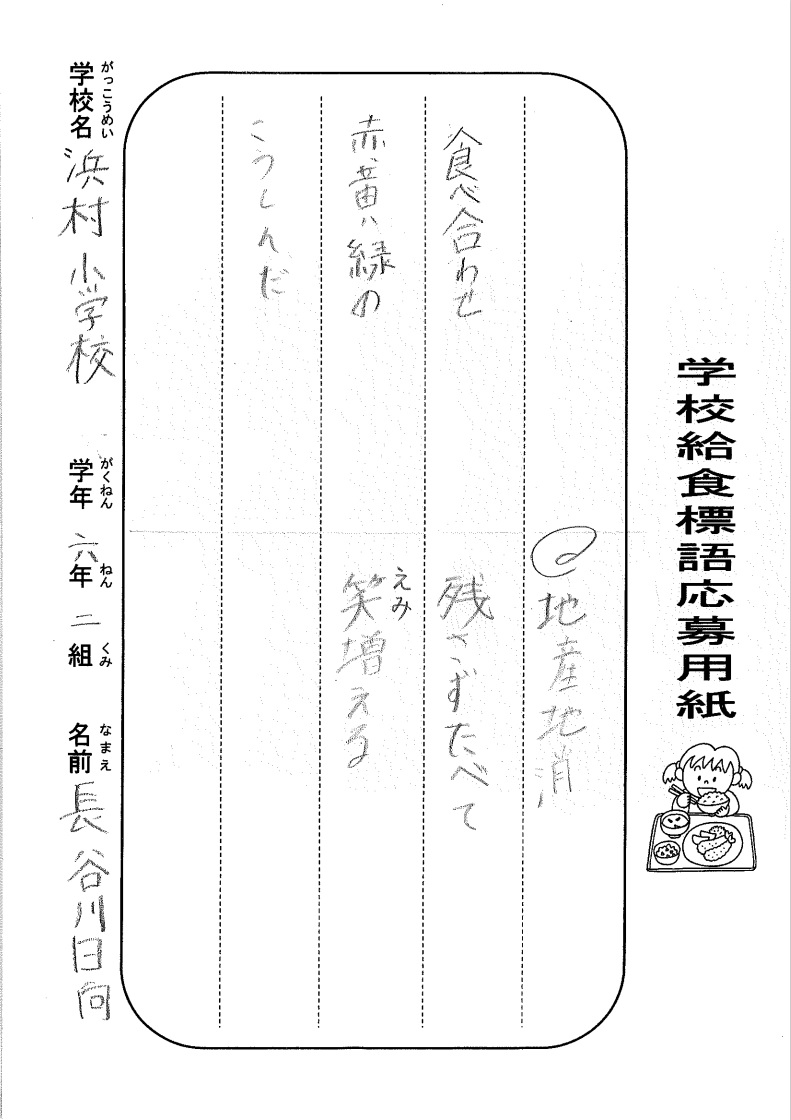 学校給食標語応募用紙
地産地消
残さずたべて
笑増える
えみ
食べ合わせ
赤、黄、緑の
こうしんだ
学校名 浜村小学校 学年 六年 二組 名前 長谷川日向
がっこうめい がくねん ねん くみ なまえ